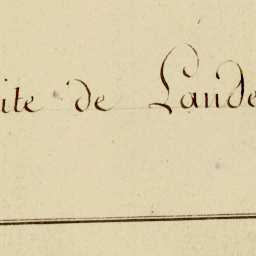 ite de Lande